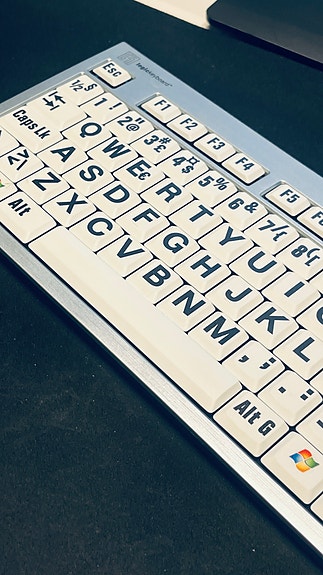 logickeyboard
Esc F1 F2 F3 F4 F5
½ § 1 ! 2 " @ 3 # £ 4 ¤ $ 5 % 6 & 7 / { 8 (
Q W E € R T Y U I
Caps Lk A S D F G H J K L
< > \ Z X C V B N M , ; . :
Alt Alt G